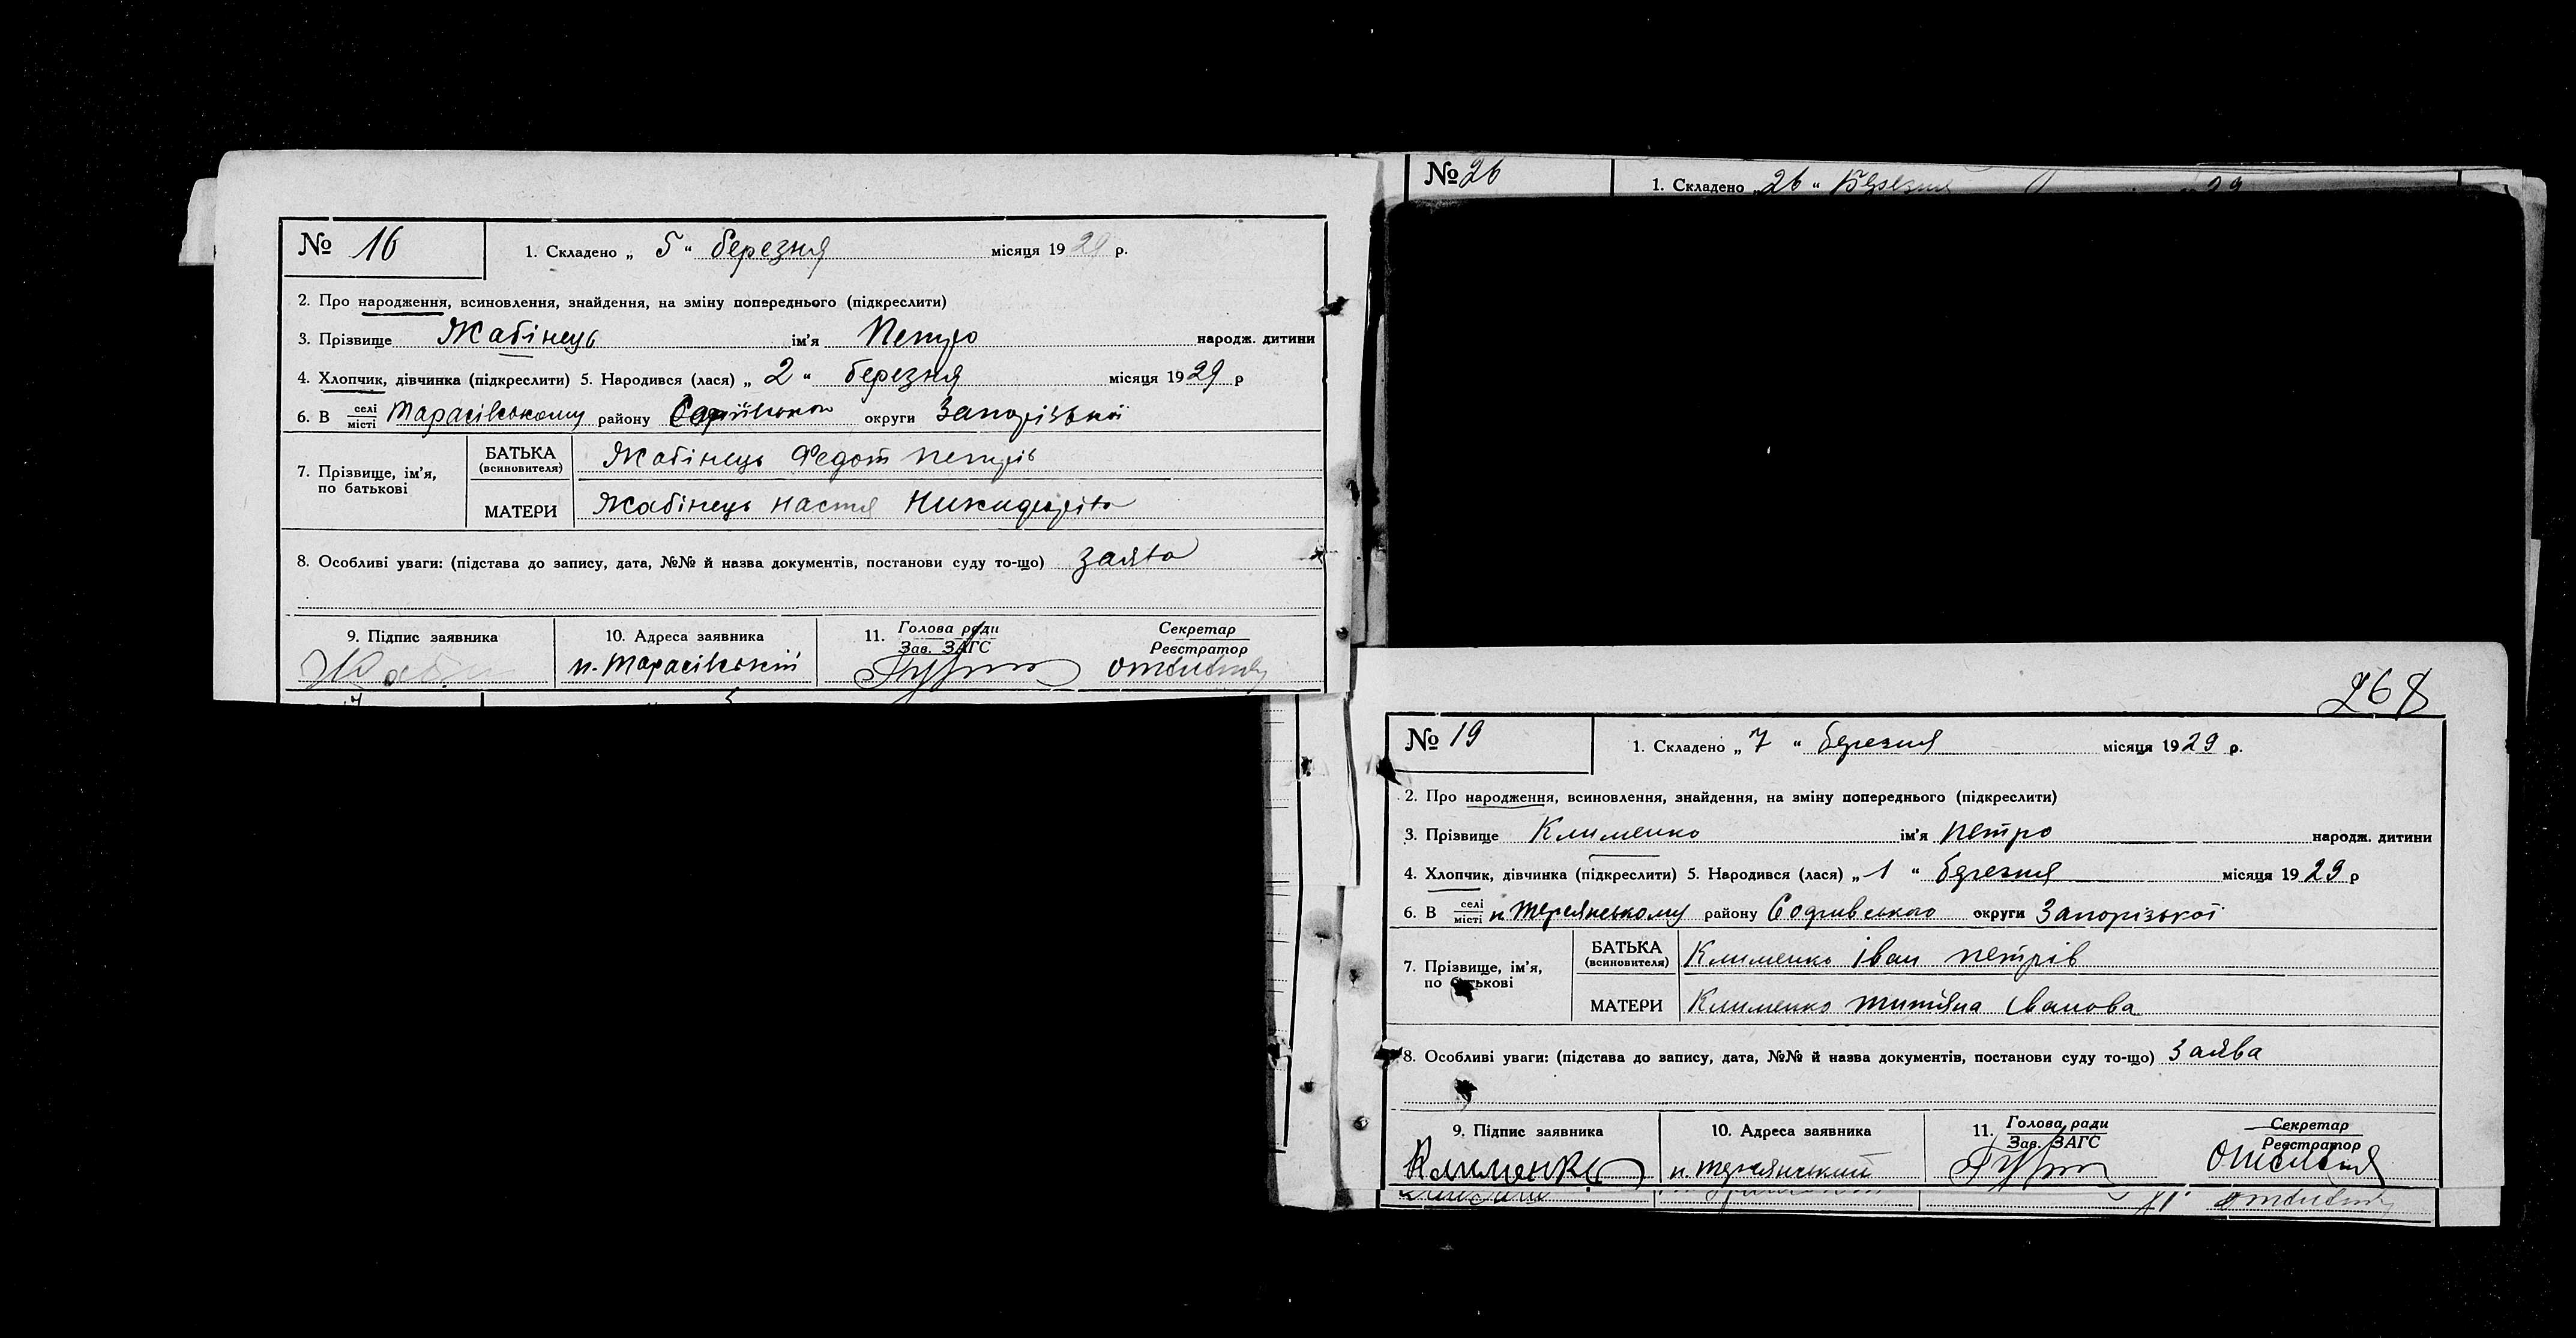 № 16
1. Складено „ 5 “ березня місяця 1929 р.
2. Про народження, всиновлення, знайдення, на зміну попереднього (підкреслити)
3. Прізвище Жабінець ім'я Петро народж. дитини
4. Хлопчик, дівчинка (підкреслити) 5. Народився (лася) „ 2 “ березня місяця 1929 р
6. В селі місті Тарасівському району округи Запорізької
7. Прізвище, ім'я, по батькові
БАТЬКА (всиновителя) Жабінець Федот Петрів
МАТЕРИ Жабінець Настя
8. Особливі уваги: (підстава до запису, дата, №№ й назва документів, постанови суду то-що) заява
9. Підпис заявника
10. Адреса заявника
х. Тарасівський
11. Голова ради Зав. ЗАГС
Секретар Реєстратор
№ 26
1. Складено „ 26 “ Березня 29
268
№ 19
1. Складено „ 7 “ березня місяця 1929 р.
2. Про народження, всиновлення, знайдення, на зміну попереднього (підкреслити)
3. Прізвище Клименко ім'я Петро народж. дитини
4. Хлопчик, дівчинка (підкреслити) 5. Народився (лася) „ 1 “ березня місяця 1929 р
6. В селі місті району округи Запорізької
7. Прізвище, ім'я, по батькові
БАТЬКА (всиновителя) Клименко Іван Петрів
МАТЕРИ Клименко Іванова
8. Особливі уваги: (підстава до запису, дата, №№ й назва документів, постанови суду то-що) Заява
9. Підпис заявника
Клименко
10. Адреса заявника
11. Голова ради Зав. ЗАГС
Секретар Реєстратор